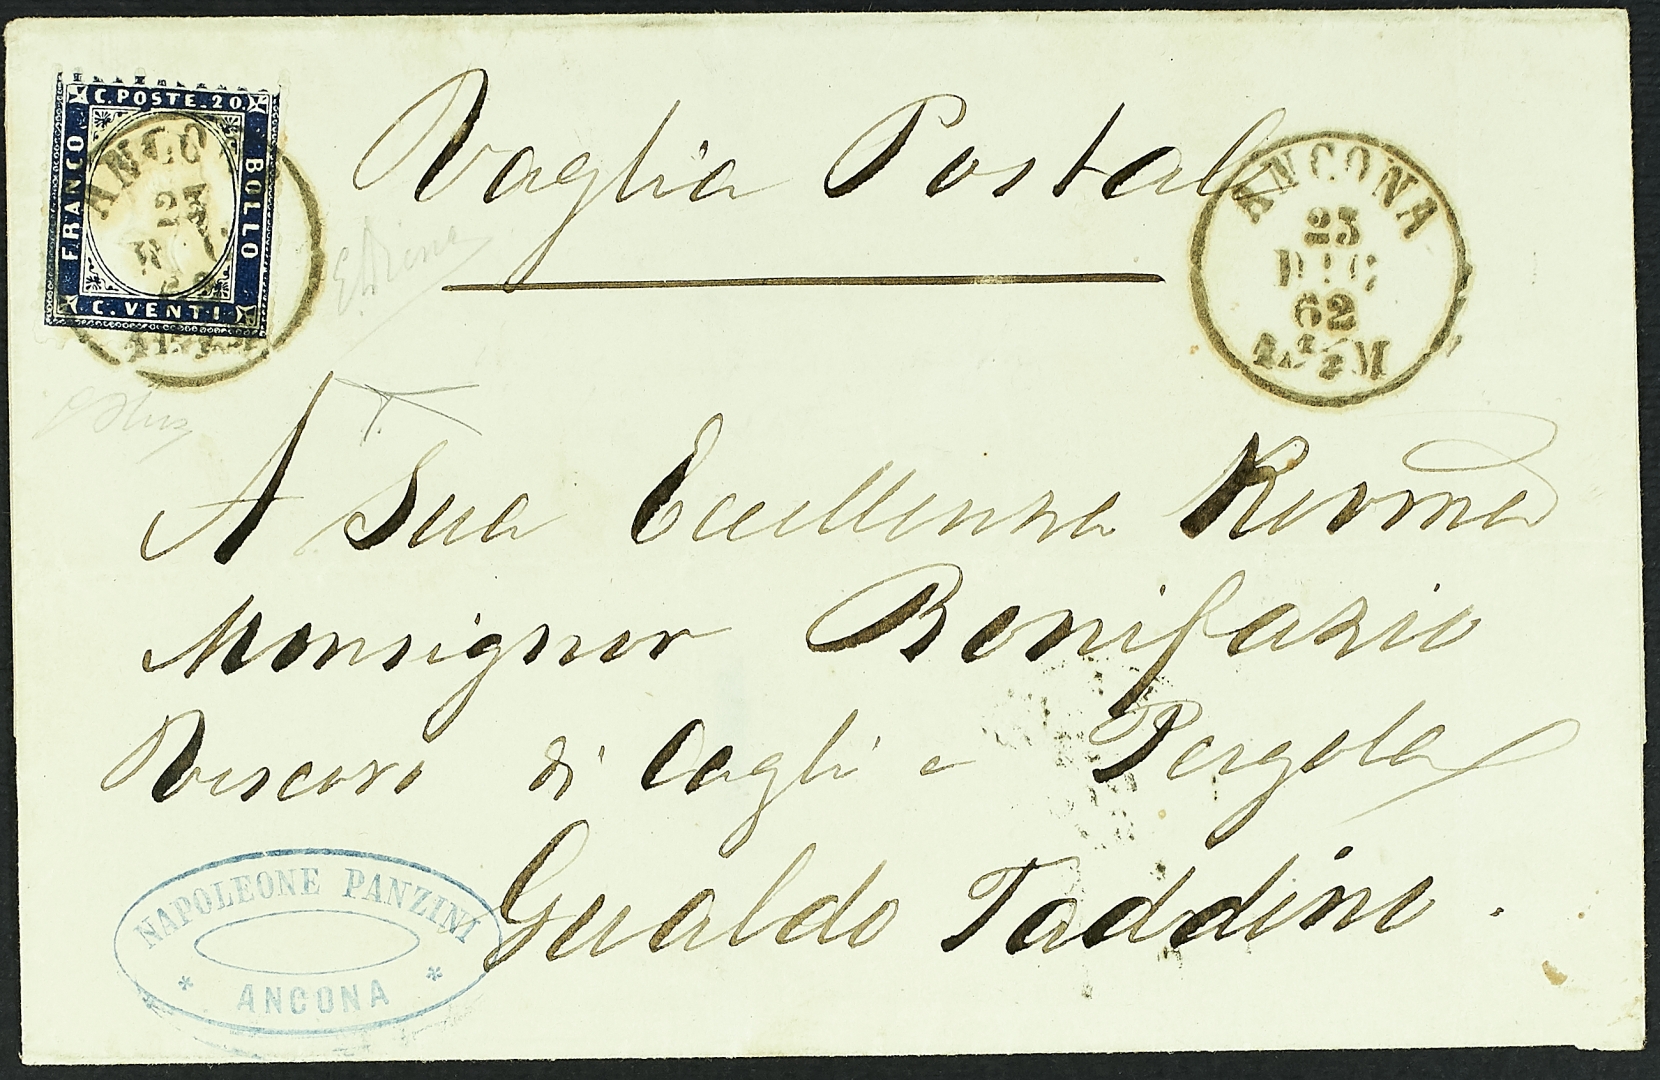 C. POSTE. 20.
FRANCO
BOLLO
C. VENTI
ANCO
Vaglia Postale
ANCONA
23
DIC
62
M
A Sua Eccellenza Revma
Monsignor Bonifazio
Vescovo di Cagli e Pergola
Gualdo Taddino.
NAPOLEONE PANZINI
* ANCONA *